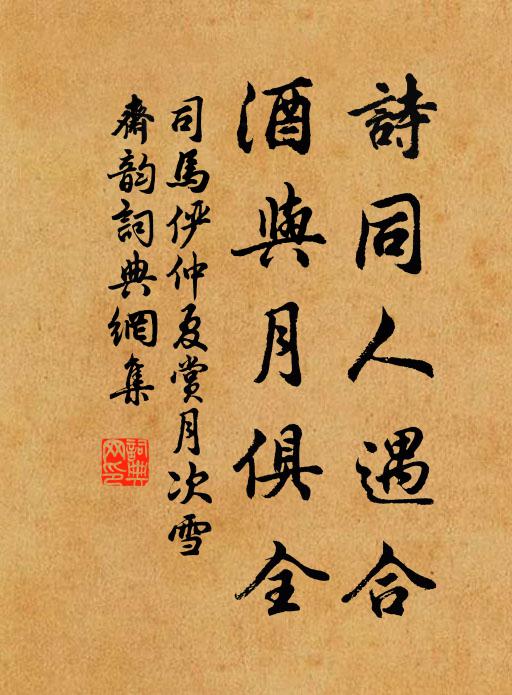 詩同人遇合
酒與月俱全
司馬俨仲夏賞月次雪
齋韵詞典網集
詞典网印